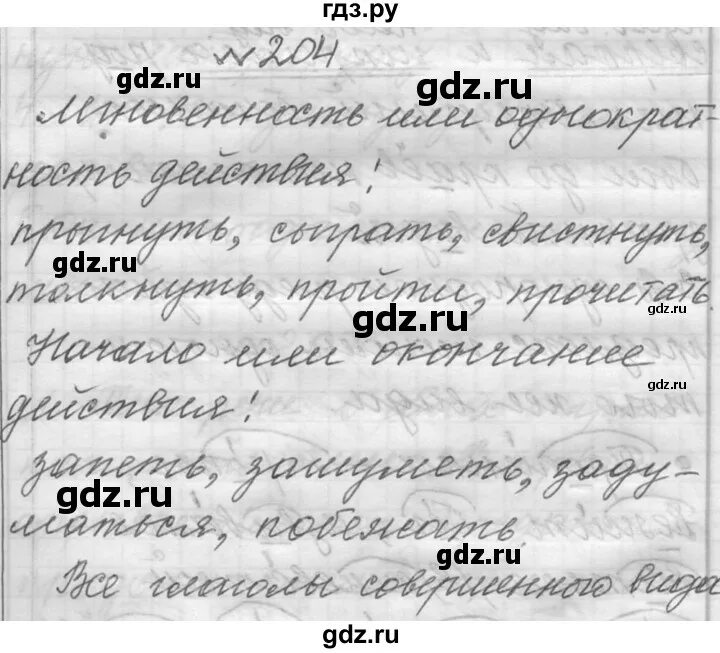 гдз.ру
№204
gdz.ru
gdz.ru
Мгновенность или однократ-
ность действия:
прыгнуть, сыграть, свистнуть,
gdz.ru
толкнуть, пройти, прочитать.
gdz.ru
gdz.ru
Начало или окончание
gdz.ru
действия:
запеть, зашуметь, заду-
gdz.ru
маться, побежать.
gdz.ru
Все глаголы совершенного вида
gdz.ru